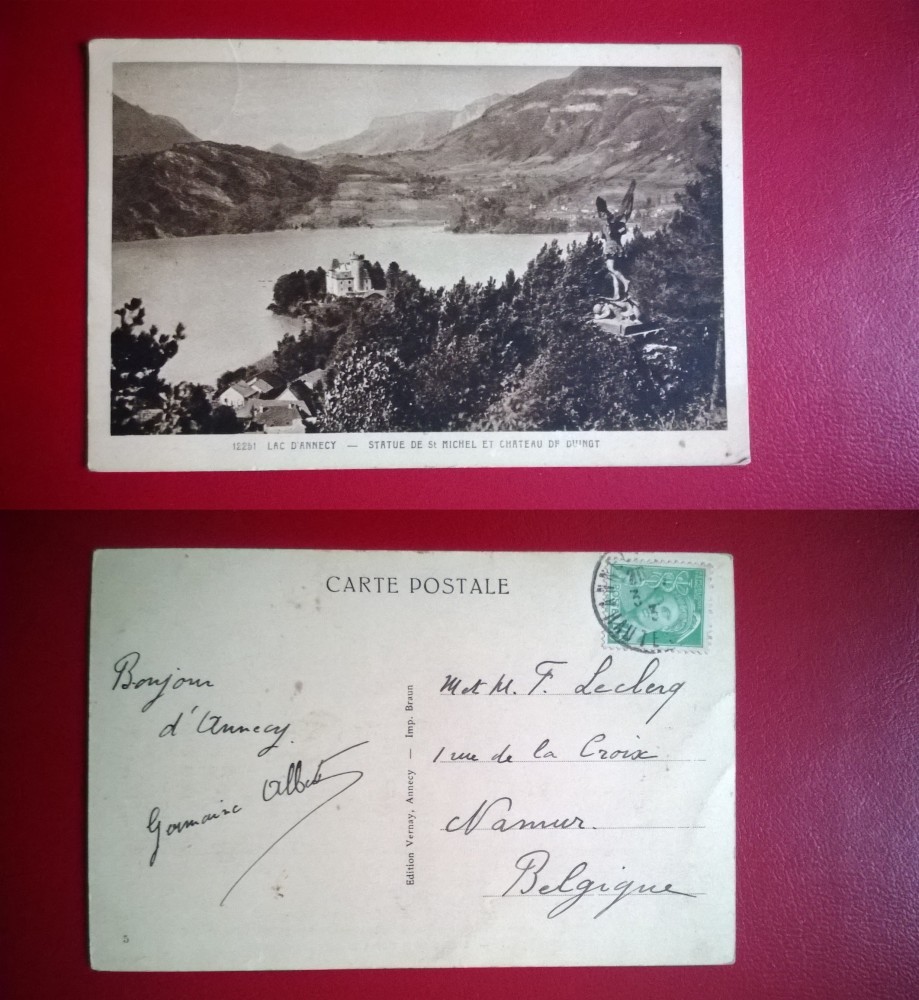 12251 LAC D'ANNECY — STATUE DE St MICHEL ET CHATEAU DE DUINGT
CARTE POSTALE
Bonjour
d'Annecy.
Germaine Albert
Edition Vernay, Annecy — Imp. Braun
M et M. F. Leclerq
1 rue de la Croix
Namur.
Belgique
5